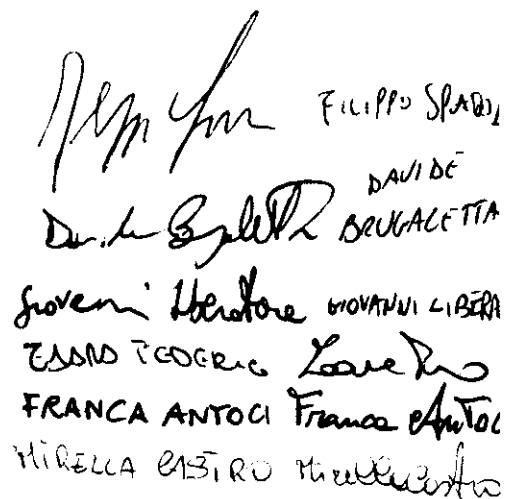 FILIPPO SPAD
DAVIDE
BRUGALETTA
Giovanni Liberatore GIOVANNI LIBERA
FEDERICO
FRANCA ANTOCI Franca Antoc
MIRELLA CASTRO Mirella Castro